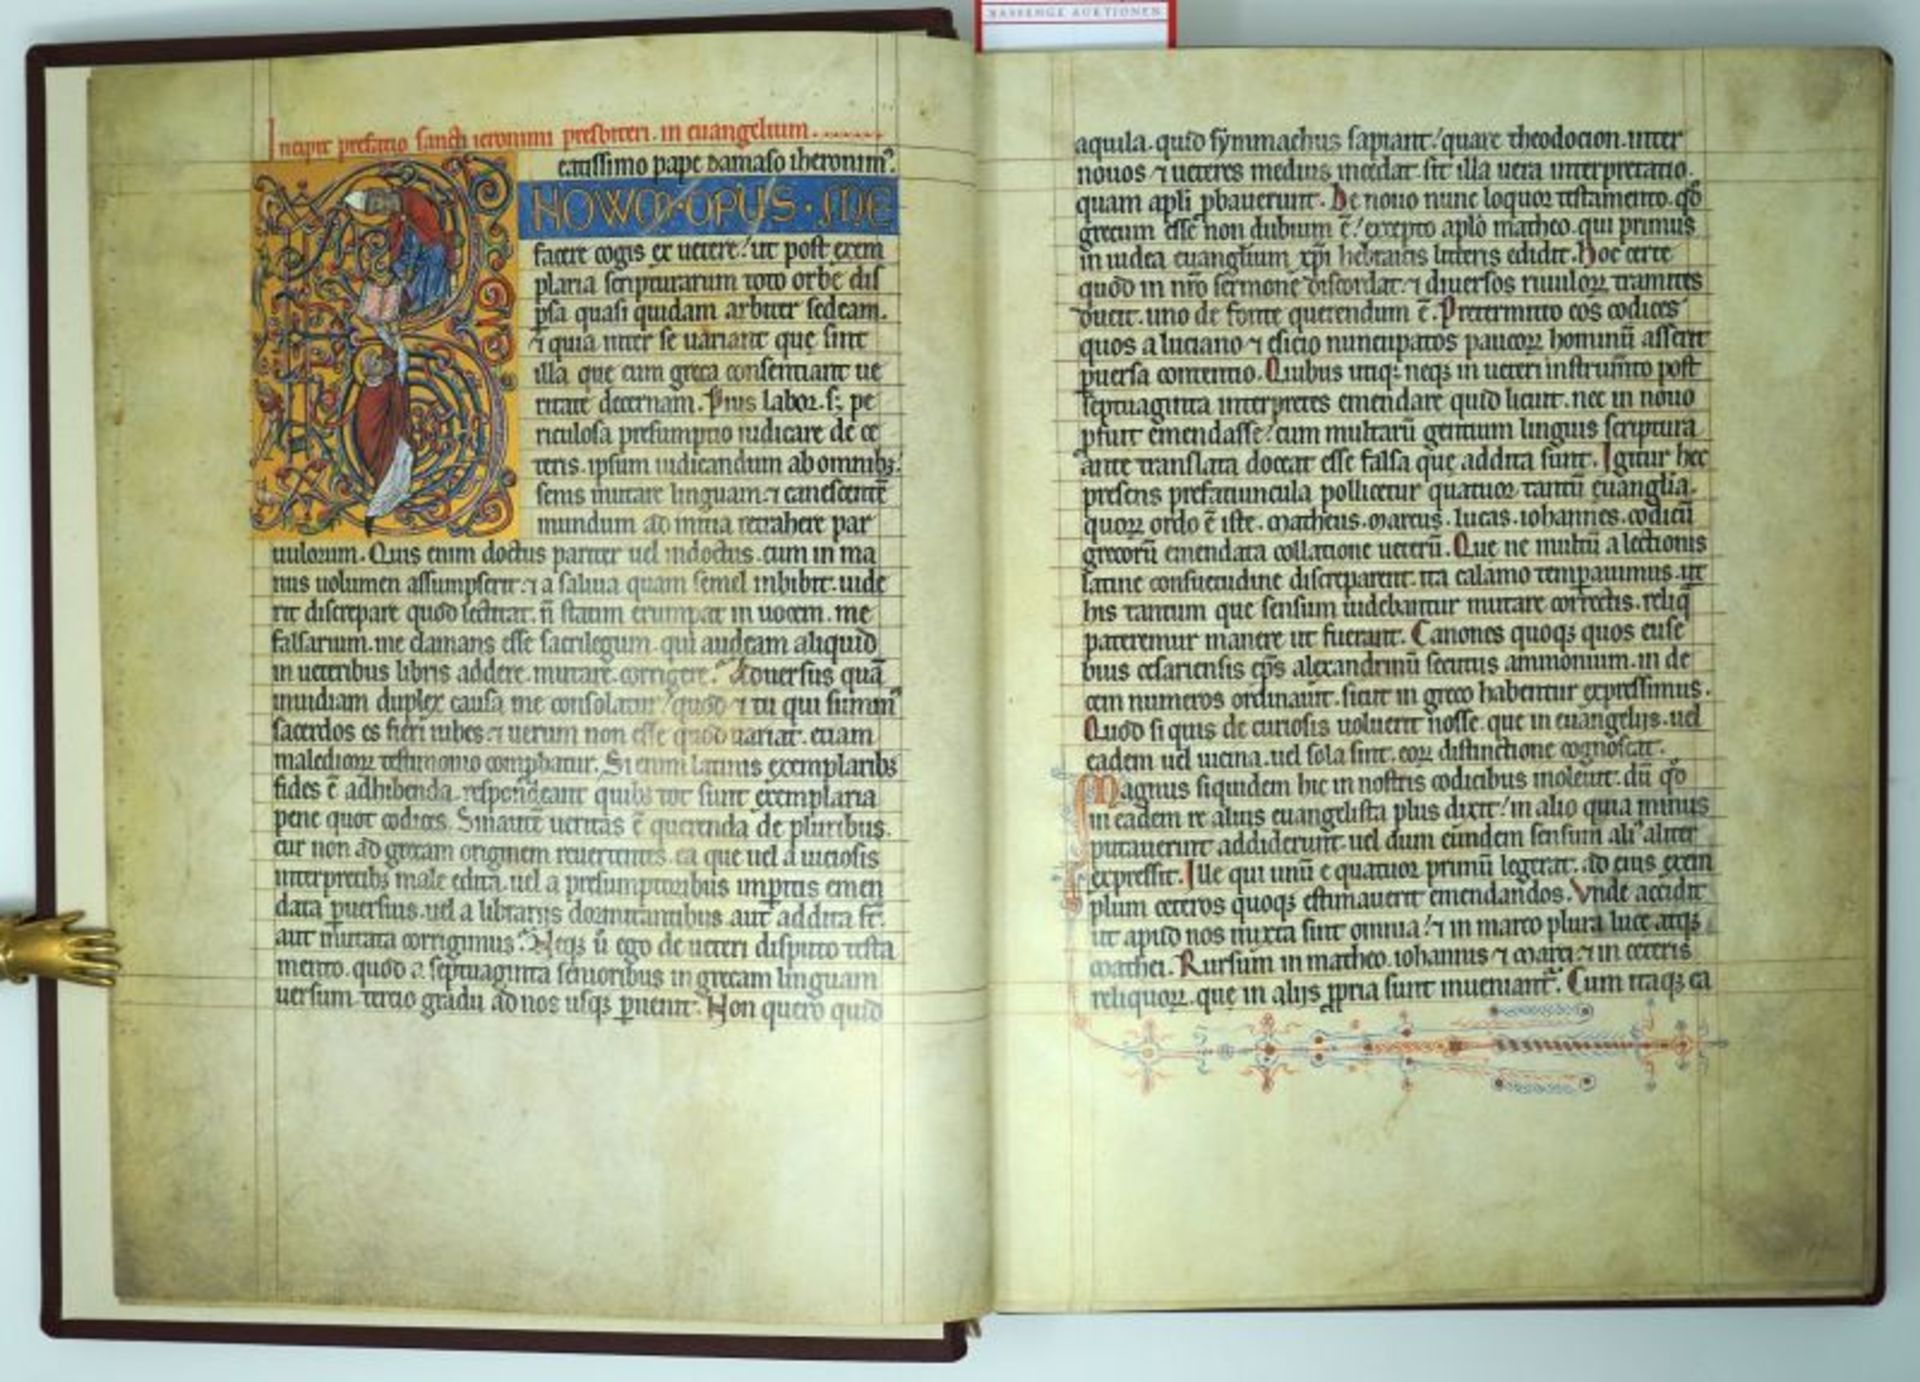 BASSENGE AUKTIONEN
Incipit prefatio sancti ieronimi presbiteri. in euangelium.......
B
eatissimo pape damaso iheronim᾿.
NOWM·OPUS·ME
facere cogis ex uetere! ut post exem
plaria scripturarum toto orbe dis
ꝑsa quasi quidam arbiter sedeam.
⁊ quia inter se uariant que sint
illa que cum greca consentiant ue
ritate decernam. Pius labor. s; pe
riculosa presumptio iudicare de ce
teris. ipsum iudicandum ab omnibꝫ!
senis mutare linguam ⁊ canescentē
mundum ad initia retrahere par
uulorum. Quis enim doctus pariter uel indoctus. cum in ma
nus uolumen assumpserit ⁊ a saliua quam semel inbibit. uide
rit discrepare quod lectitat. ñ statim erumpat in uocem. me
falsarium. me clamans esse sacrilegum. qui audeam aliquid
in ueteribus libris addere. mutare. corrigere. Aduersus quā
inuidiam duplex causa me consolatur! quod ⁊ tu qui summ᾿
sacerdos es fieri iubes. ⁊ uerum non esse quod uariat. etiam
maledicoꝝ testimonio comꝓbatur. Si enim latinis exemplaribꝫ
fides ē adhibenda. respondeant quibꝫ tot sunt exemplaria
pene quot codices. Sin autē ueritas ē querenda de pluribus.
cur non ad grecam originem reuertentes. ea que uel a uiciosis
interpretibꝫ male edita. uel a presumptoribus imperitis emen
data ꝑuersius. uel a librariis dormitantibus aut addita sī.
aut mutata corrigimus. Neqꝫ ū ego de ueteri disputo testa
mento. quod a septuaginta senioribus in grecam linguam
uersum. tercio gradu ad nos usqꝫ ꝑuenit. Non quero quid
aquila. quid symmachus sapiant! quare theodocion. inter
nouos ⁊ ueteres medius incedat. sit illa uera interpretatio.
quam apłi ꝓbauerunt. De nouo nunc loquor testamento. qd̄
grecum esse non dubium ē! excepto aplo matheo. qui primus
in iudea euanglium xp̄i hebraicis litteris edidit. Hoc certe
quod in nr̄o sermone discordat. ⁊ diuersos riuuloꝝ tramites
ducit. uno de fonte querendum ē. Pretermitto eos codices
quos a luciano ⁊ esicio nuncupatos paucoꝝ hominū asserit
ꝑuersa contentio. Quibus utiqꝫ neqꝫ in ueteri instrumēto post
septuaginta interpretes emendare quid licuit. nec in nouo
ꝓfuit emendasse! cum multarū gentium linguis scriptura
ante translata doceat esse falsa que addita sunt. Igitur hec
presens prefatiuncula pollicetur quatuor tantū euanglia.
quoꝝ ordo ē iste. matheus. marcus. lucas. iohannes. codicū
grecorū emendata collatione ueterū. Que ne multū a lectionis
latine consuetudine discreparent. ita calamo temperauimus. ut
his tantum que sensum uidebantur mutare correctis. reliq̄
pateremur manere ut fuerant. Canones quoqꝫ quos euse
bius cesariensis ep̄s alexandrinū secutus ammonium. in de
cem numeros ordinauit. sicut in greco habentur expressimus.
Quod si quis de curiosis uoluerit nosse. que in euangeliis. uel
eadem uel uicina. uel sola sint. eoꝝ distinctione cognoscat.
Magnus siquidem hic in nostris codicibus inoleuit. dū qd̄
in eadem re alius euangelista plus dixit! in alio quia minus
putauerint addiderunt. uel dum eundem sensum ali᾿ aliter
expressit. Ille qui unū e quatuor primū legerat. ad eius exem
plum ceteros quoqꝫ estimauerit emendandos. Vnde accidit
ut apud nos mixta sint omnia! ⁊ in marco plura luce atqꝫ
mathei. Rursum in matheo. iohannis ⁊ marci. ⁊ in ceteris
reliquoꝝ. que in aliis ꝓpria sunt inueniant᾿. Cum itaqꝫ ca